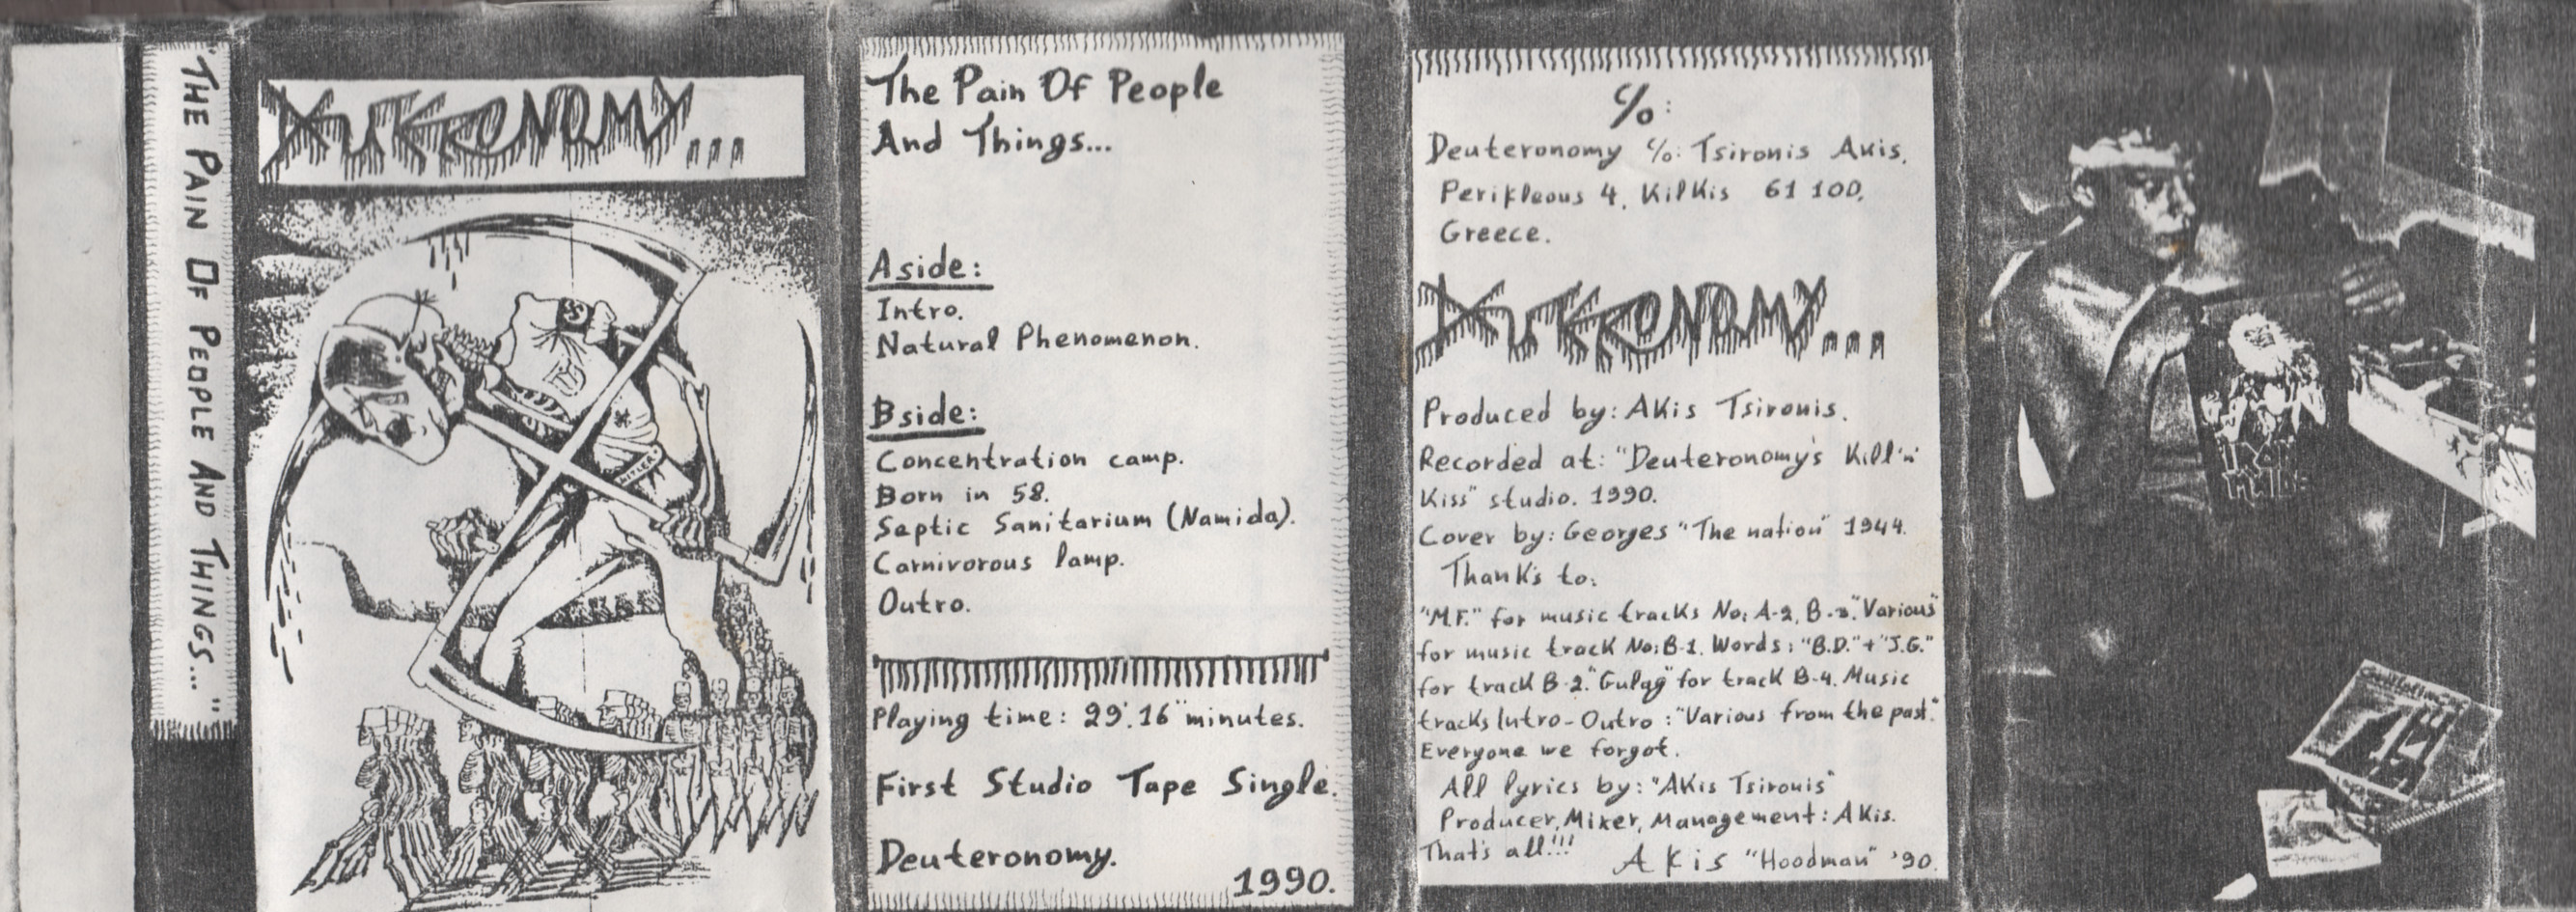 "THE PAIN OF PEOPLE AND THINGS..."
DEUTERONOMY...
HITLER
The Pain Of People
And Things...
Aside:
Intro.
Natural Phenomenon.
Bside:
Concentration camp.
Born in 58.
Septic Sanitarium (Namida).
Carnivorous lamp.
Outro.
Playing time: 29'.16'' minutes.
First Studio Tape Single.
Deuteronomy.
1990.
%:
Deuteronomy %: Tsironis Akis.
Perikleous 4, Kilkis 61 100,
Greece.
DEUTERONOMY...
Produced by: Akis Tsironis.
Recorded at: "Deuteronomy's Kill 'n'
Kiss" studio. 1990.
Cover by: Georges "The nation" 1944.
Thank's to:
"M.F." for music tracks No: A-2, B-3. "Various"
for music track No: B-1. Words: "B.D." + "J.G."
for track B-2. "Gulag" for track B-4. Music
tracks Intro - Outro : "Various from the past".
Everyone we forgot.
All lyrics by: "Akis Tsironis"
Producer, Mixer, Management: Akis.
That's all!!!
Akis "Hoodman" '90.
IRON
MAIDEN